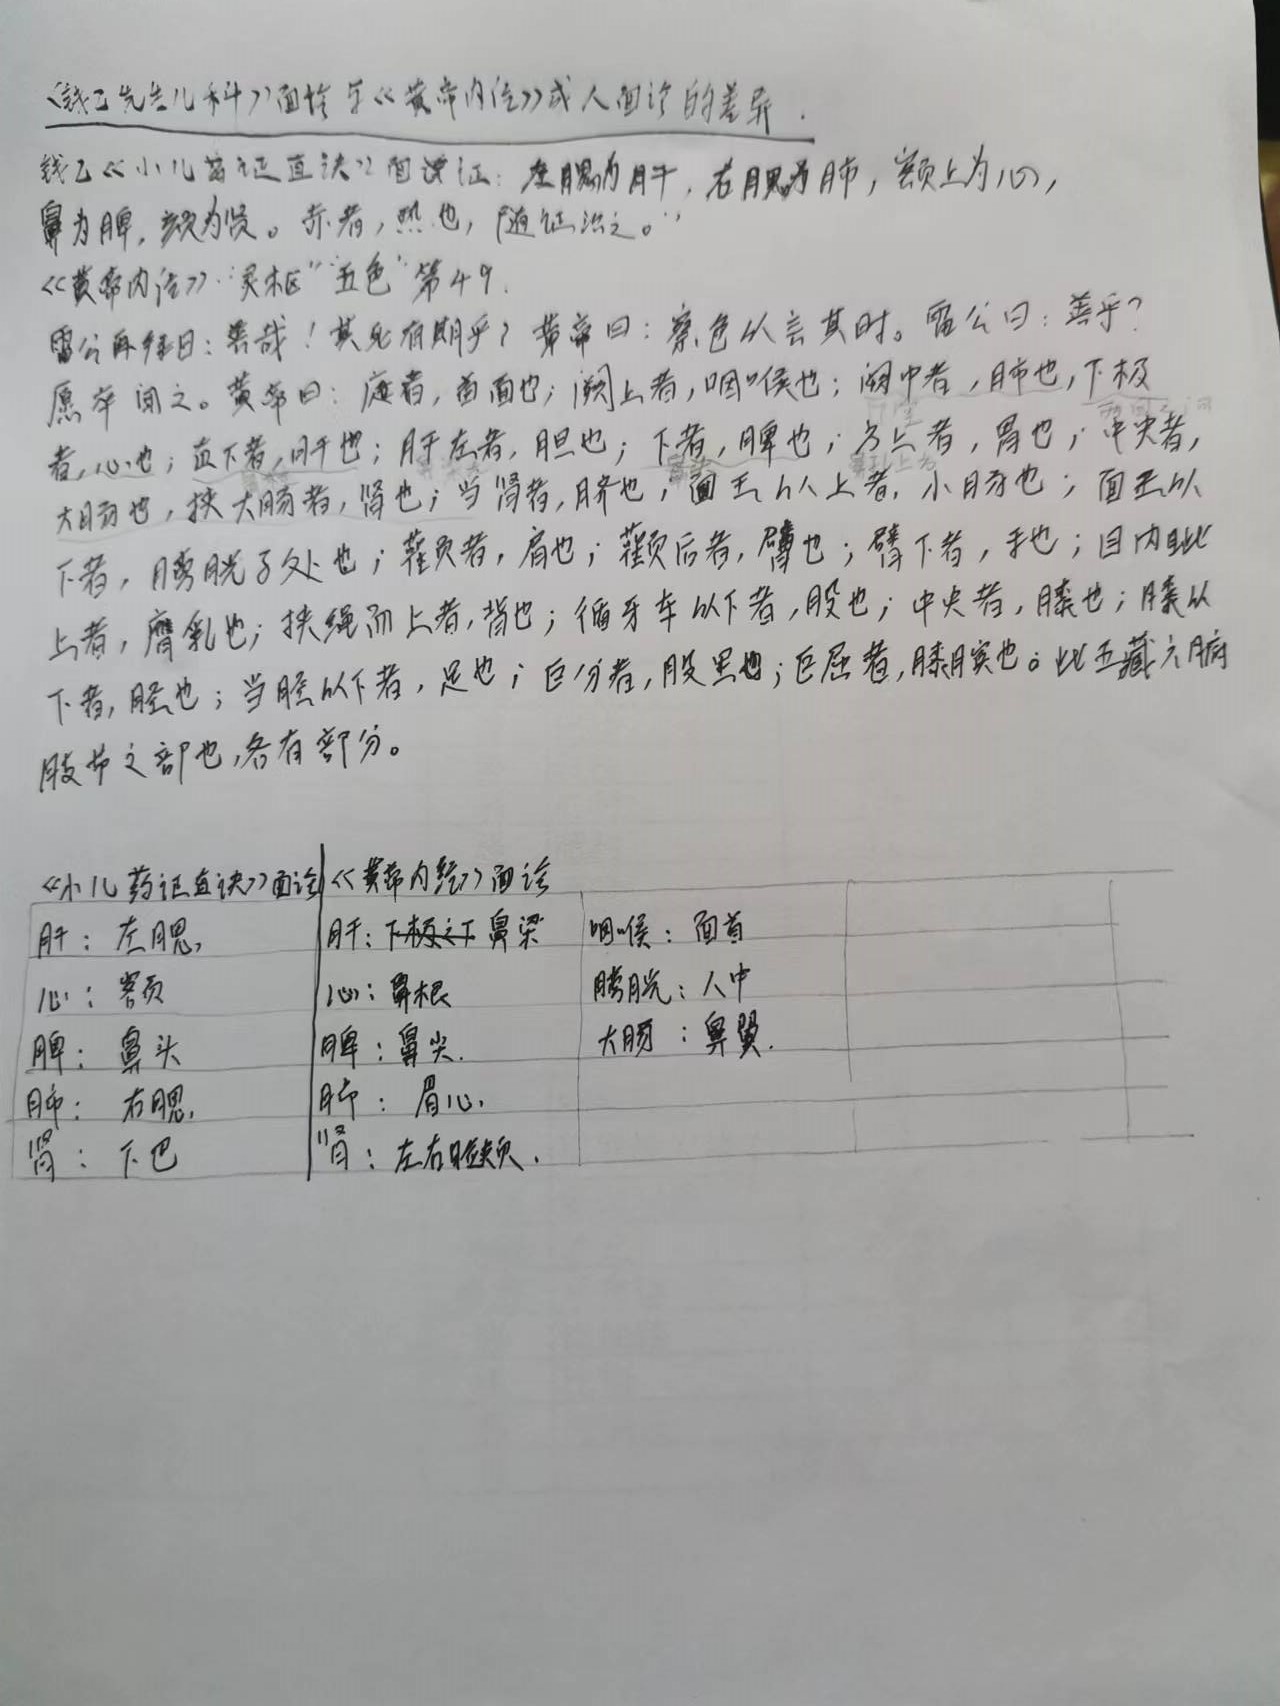 《钱乙先生儿科》面诊与《黄帝内经》成人面诊的差异.
钱乙《小儿药证直诀》面上证: 左腮为肝, 右腮为肺, 额上为心,
鼻为脾, 颏为肾。赤者, 热也, 随证治之。"
《黄帝内经》·灵枢"五色"第49.
雷公再拜曰: 善哉! 其死有期乎? 黄帝曰: 察色以言其时。雷公曰: 善乎?
愿卒闻之。黄帝曰: 庭者, 首面也; 阙上者, 咽喉也; 阙中者, 肺也, 下极
者, 心也; 直下者, 肝也; 肝左者, 胆也; 下者, 脾也; 方上者, 胃也; 中央者,
大肠也, 挟大肠者, 肾也; 当肾者, 脐也; 面王以上者, 小肠也; 面王以
下者, 膀胱子处也; 颧者, 肩也; 颧后者, 臂也; 臂下者, 手也; 目内眦
上者, 膺乳也; 挟绳而上者, 背也; 循牙车以下者, 股也; 中央者, 膝也; 膝以
下者, 胫也; 当胫以下者, 足也; 巨分者, 股里也; 巨屈者, 膝膑也。此五藏六腑
肢节之部也, 各有部分。
《小儿药证直诀》面诊 《黄帝内经》面诊
肝: 左腮, 肝: 下极之下 鼻梁 咽喉: 面首
心: 额 心: 鼻根 膀胱: 人中
脾: 鼻头 脾: 鼻尖. 大肠: 鼻翼.
肺: 右腮, 肺: 眉心,
肾: 下巴 肾: 左右脸颊.